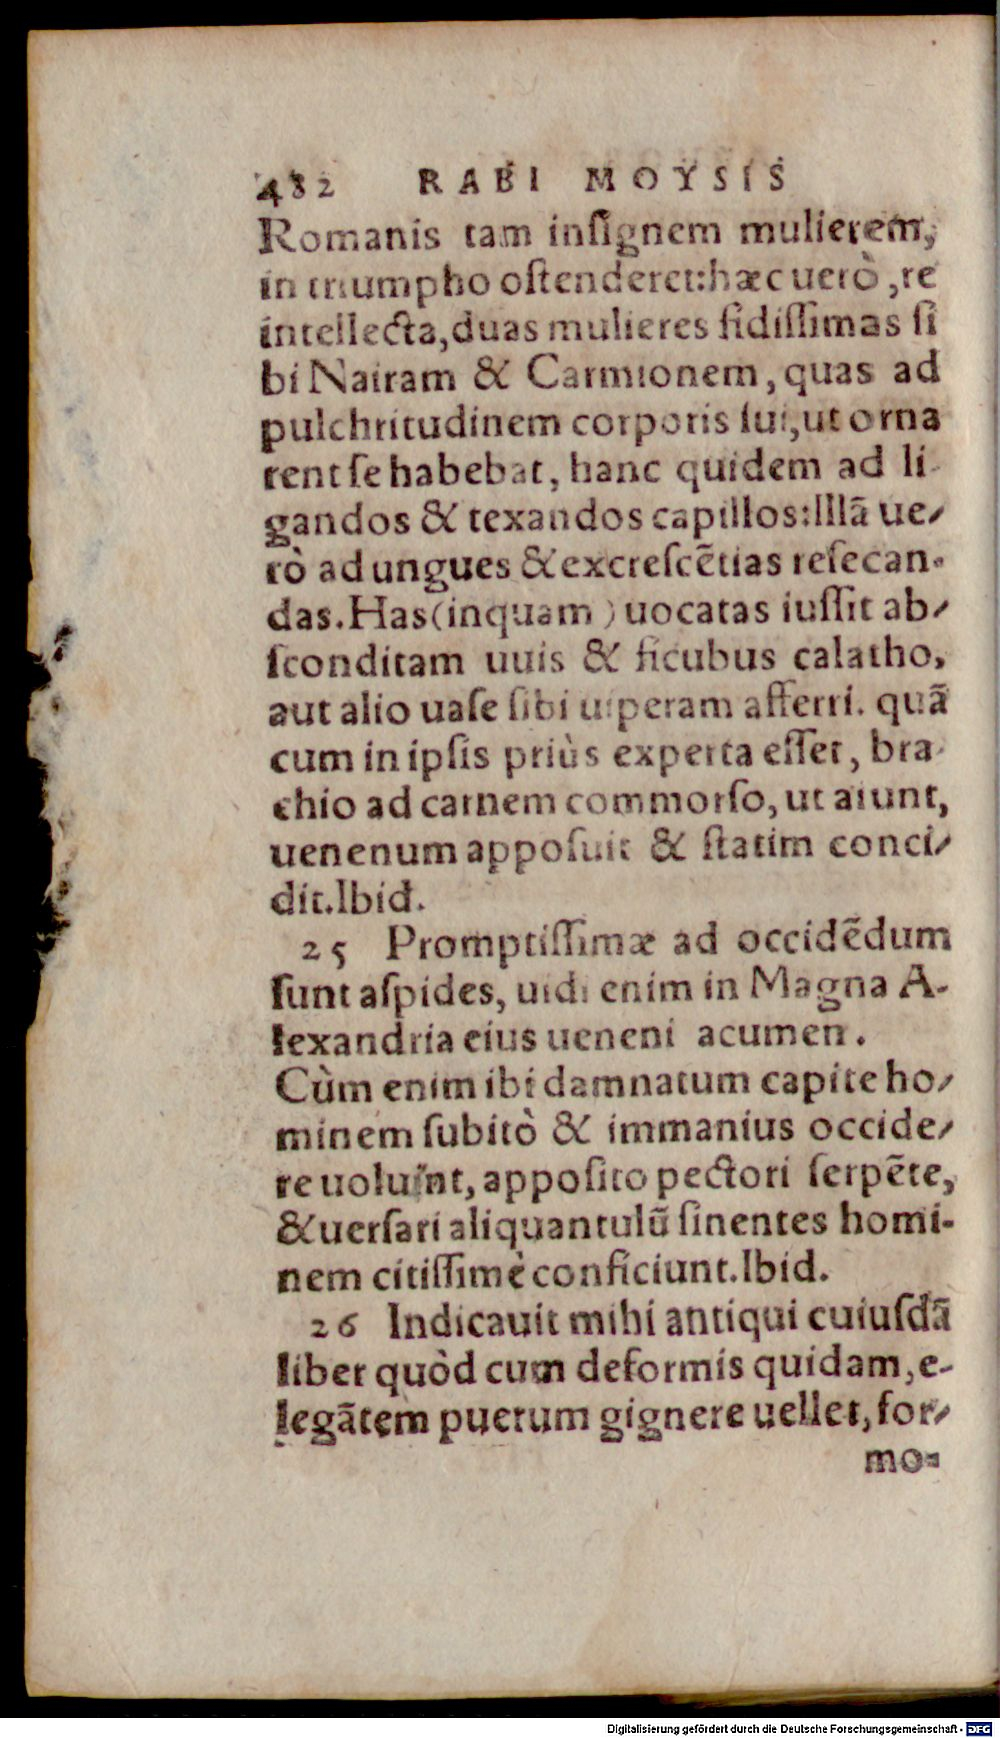 482 RABI MOYSIS
Romanis tam inſignem mulierem,
in triumpho oſtenderet:hæc uerò, re
intellecta, duas mulieres fidiſſimas ſi
bi Nairam & Carmionem, quas ad
pulchritudinem corporis ſui, ut orna
rent ſe habebat, hanc quidem ad li-
gandos & texandos capillos:Illã ue-
rò ad ungues & excreſcẽtias reſecan-
das. Has (inquam) uocatas iuſſit ab-
ſconditam uuis & ficubus calatho,
aut alio uaſe ſibi uiperam afferri. quã
cum in ipſis priùs experta eſſet, bra-
chio ad carnem commorſo, ut aiunt,
uenenum appoſuit & ſtatim conci-
dit. Ibid.
25 Promptiſſimæ ad occidẽdum
ſunt aſpides, uidi enim in Magna A-
lexandria eius ueneni acumen.
Cùm enim ibi damnatum capite ho-
minem ſubitò & immanius occide-
re uoluĩnt, appoſito pectori ſerpẽte,
& uerſari aliquantulũ ſinentes homi-
nem citiſſimè conficiunt. Ibid.
26 Indicauit mihi antiqui cuiuſdã
liber quòd cum deformis quidam, e-
legãtem puerum gignere uellet, for-
mo-
Digitalisierung gefördert durch die Deutsche Forschungsgemeinschaft - DFG